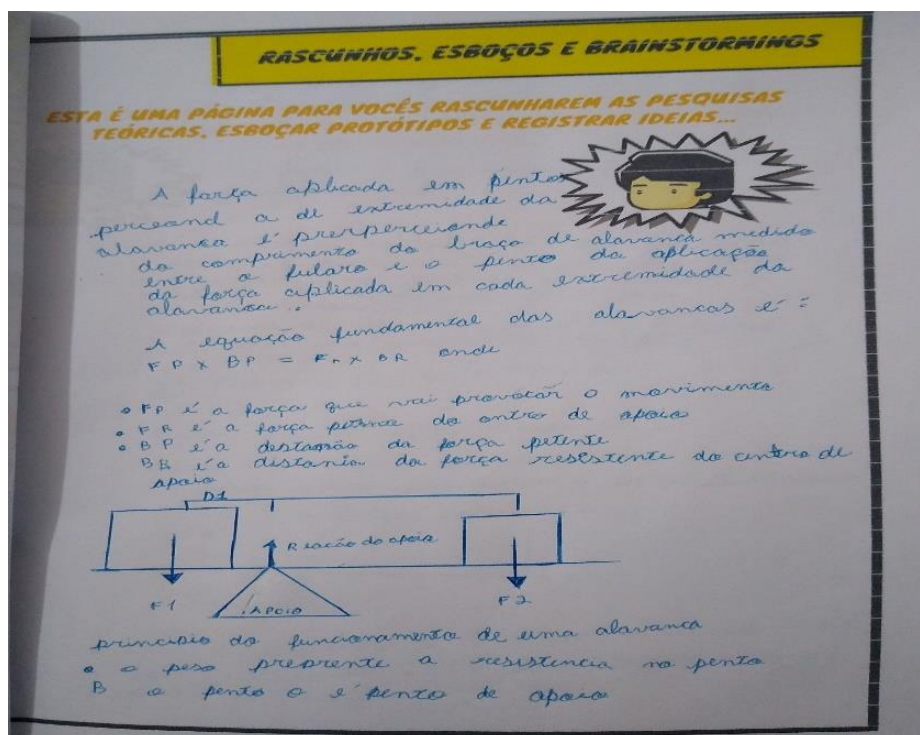 RASCUNHOS, ESBOÇOS E BRAINSTORMINGS
ESTA É UMA PÁGINA PARA VOCÊS RASCUNHAREM AS PESQUISAS
TEÓRICAS, ESBOÇAR PROTÓTIPOS E REGISTRAR IDEIAS...
A força aplicada em pentos
perceand a de extremidade da
alavanca é prerperceionde
do comprimento do braço de alavanca medido
entre o fularo e o pento da aplicação
da força aplicada em cada extremidade da
alavanca.
A equação fundamental das alavancas é:
FP x BP = Fr x BR onde
• FP é a força que vai provocar o movimento
• FR é a força do de apoio
• BP é a da força petente
BB é a distania da força resistente do centro de
apoio
D1
Reacão do apoio
F1
APOIO
F2
principio do funcionamento de uma alavanca
• o peso preprente a resistencia no pento
B o pento o é pento de apoio